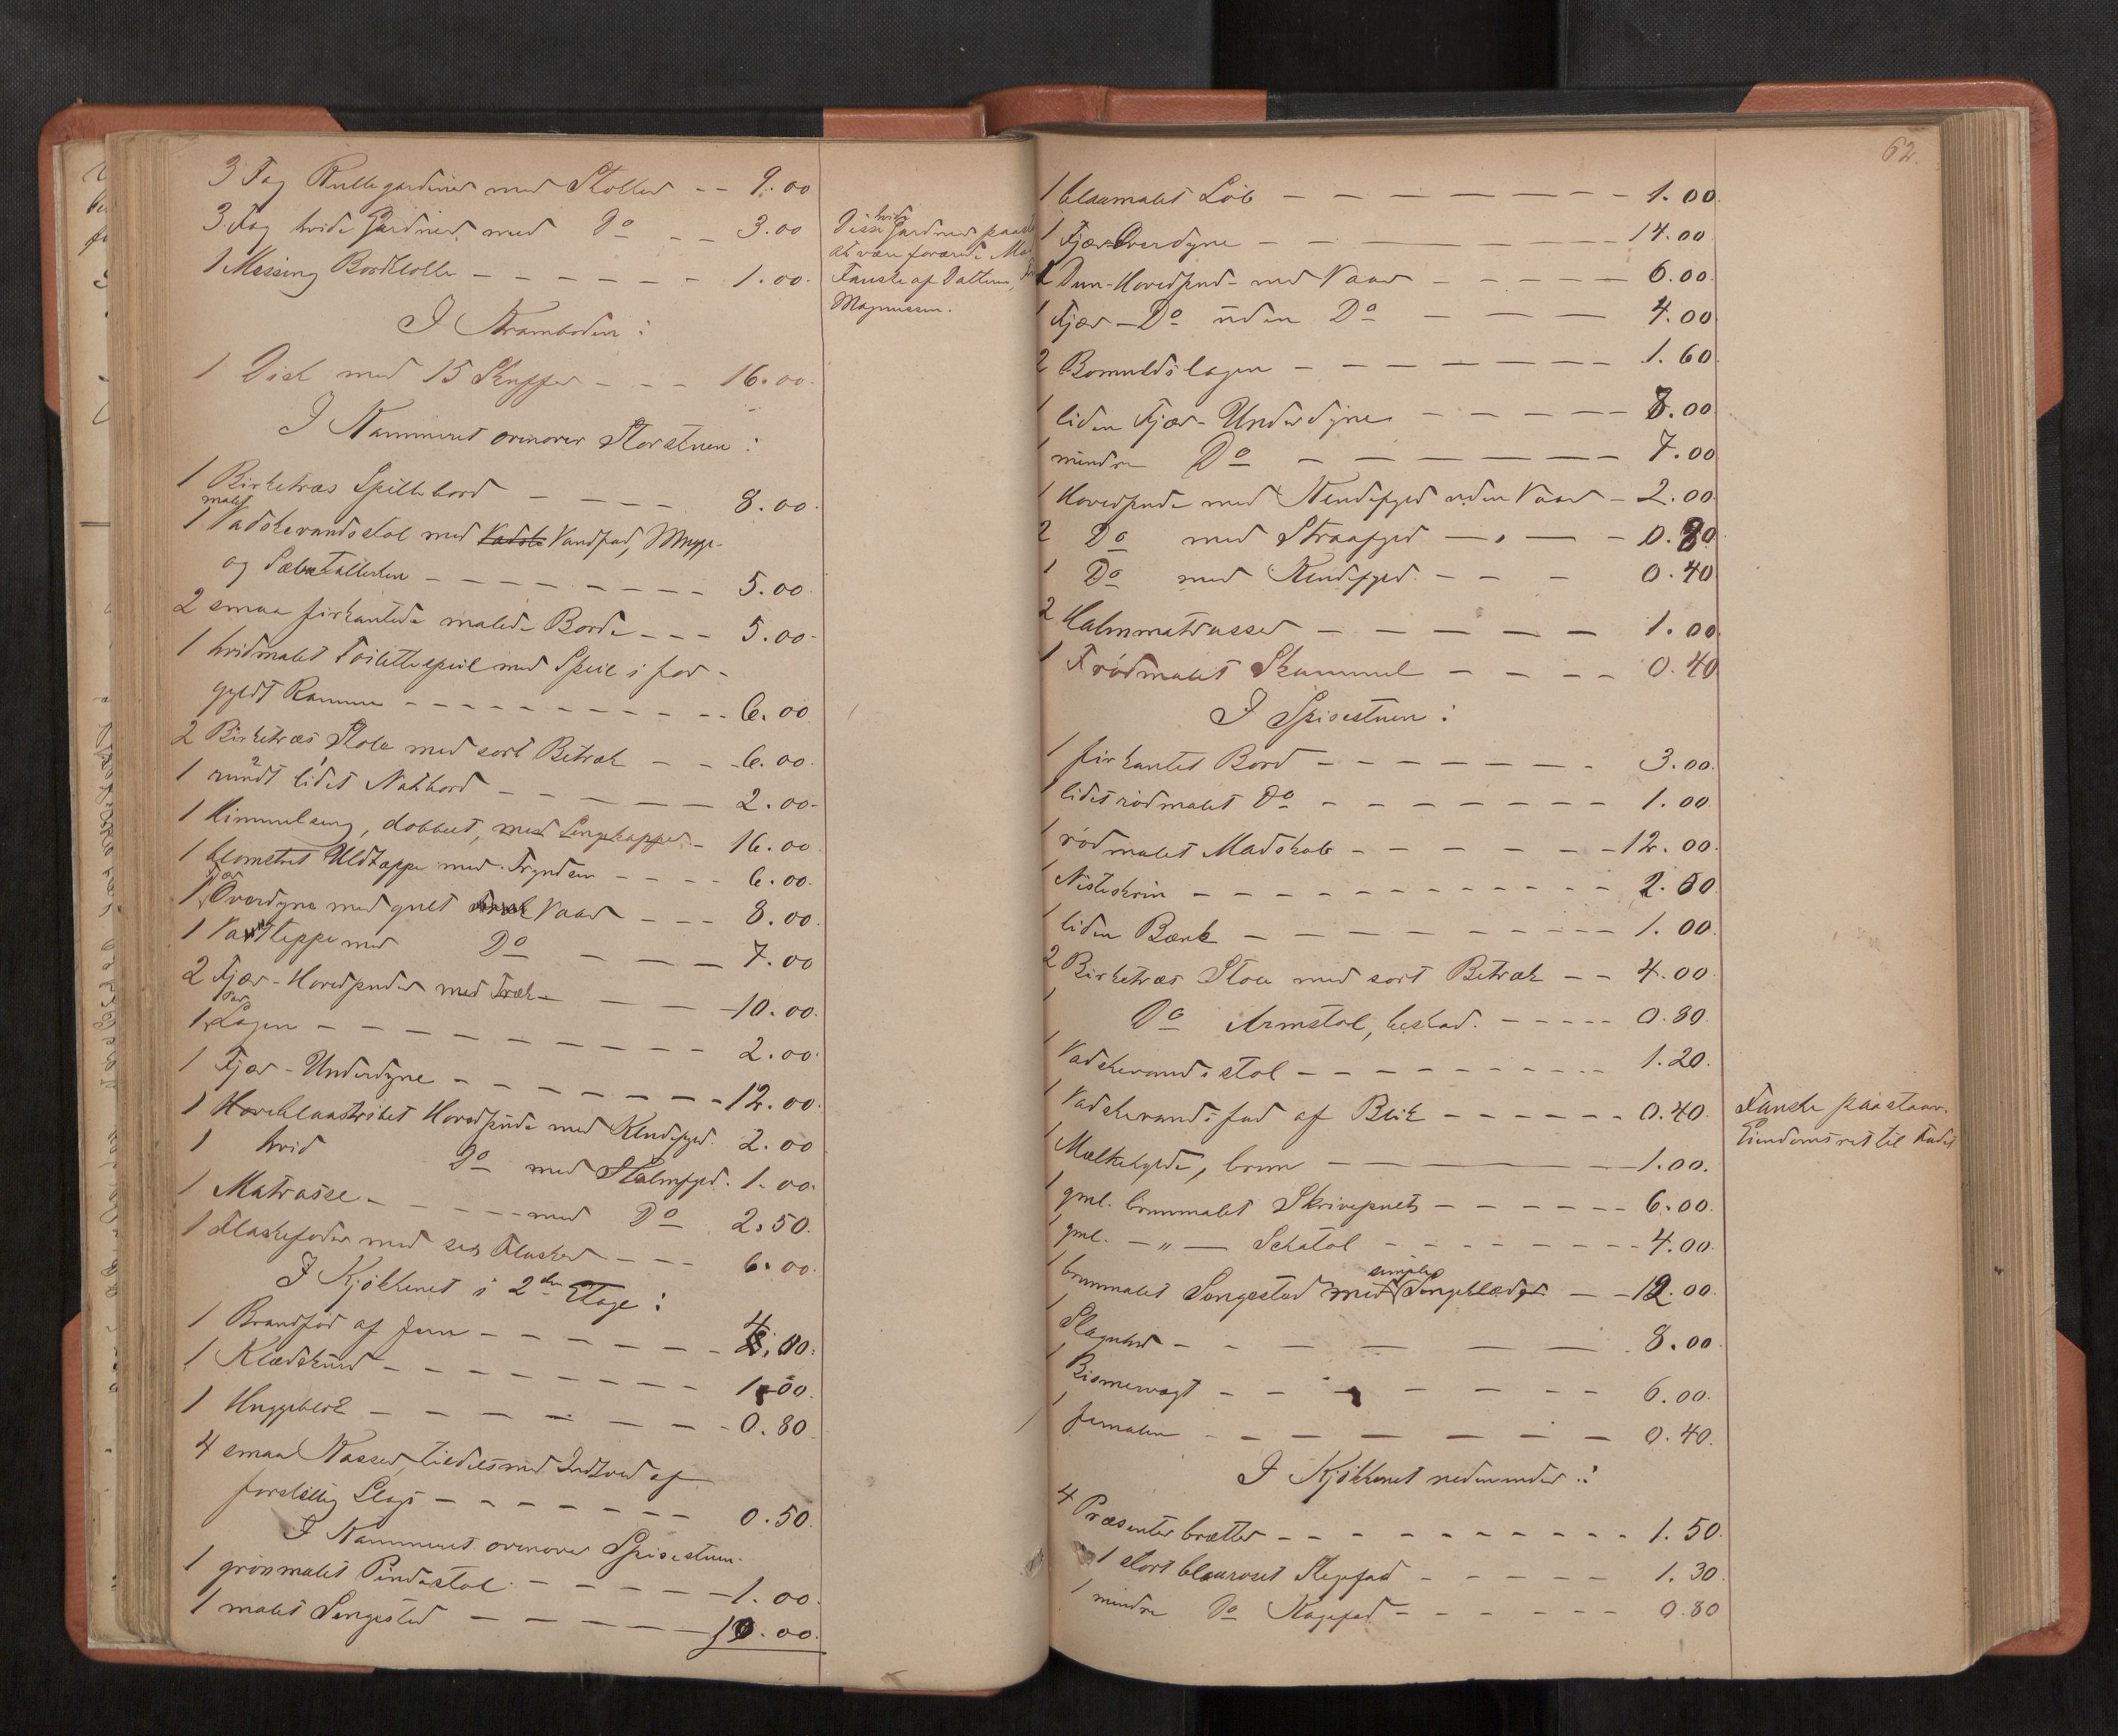 3 Fag Rullegardiner med Stokker -- 9.00
3 Fag hvide Gardiner med Do -- 3.00
1 Messing Bordklokke ----- 1.00
Disse hvide Gardiner
at være forærede
Fauske af Datteren,
Magnussen.
I Kramboden:
1 Disk med 15 Skuffer --- 16.00
I Kammeret ovenover Storstuen:
1 Birketræs Spillebord ---- 8.00
1 malet Vadskevandsstol med Vadske Vandfad, Mugge
og Sæbetallerken ------- 5.00
2 smaa firkantede malede Borde --- 5.00
1 hvidmalet Toilettespeil med Speil i for-
gyldt Ramme --------- 6.00
2 Birketræs Stole med sort Betræk --- 6.00
1 rundt lidet Nathbord ----- 2.00
1 Himmelseng, dobbelt, med Sengekapper - 16.00
1 blomstret Uldtæppe med Fryndser ---- 6.00
1 Fjær Overdyne med gult Vaar --- 8.00
1 Vattteppe med Do ---- 7.00
2 Fjær-Hovedpuder med Træk --- 10.00
1 Par Lagen -------- 2.00
1 Fjær-Underdyne ------- 12.00
1 blaastribet Hovedpude med Kludefyld. 2.00
1 hvid Do med Halmfyld. 1.00
1 Matrasse ---- med Do 2.50
1 Flaskefoder med sex Flasker --- 6.00
I Kjøkkenet i 2den Etage:
1 Brandfod af Jern ------
1 Klædskurv -------- 1.00
1 Huggeblok ------- 0.80
4 smaa Kasser, tildels med Indhold af
forskjellig Slags ------- 0.50
I Kammeret ovenover Spisestuen.
1 grønmalet Pindestol ----- 1.00
1 malet Sengested ---- 10.00
62.
1 blaamalet Løb ------- 1.00
1 Fjær Overdyne ------ 14.00
1 Dun-Hovedpude med Vaar ----- 6.00
1 Fjær-Do uden Do --- 4.00
2 Bomuldslagen ------ 1.60
1 liden Fjær-Underdyne ----- 8.00
1 mindre Do ------ 7.00
1 Hovedpude med Kludefyld uden Vaar - 2.00
2 Do med Straafyld --- 0.80
1 Do med Kludefyld --- 0.40
2 Halmmatrasser ----- 1.00
1 rødmalet Skammel ---- 0.40
I Spisestuen:
1 firkantet Bord ------- 3.00
1 lidet rødmalet Do ------- 1.00
1 rødmalet Madskab ------ 12.00
1 Nisteskrin ----------- 2.50
1 liden Bænk --------- 1.00
2 Birketræs Stole med sort Betræk -- 4.00
1 Do Armstol, beskad. ----- 0.80
1 Vadskevandsstol -------- 1.20
1 Vadskevandsfad af Blik ------ 0.40
Fauske paastaar
Eiendomsret til
1 Melkehylde, brun ---- 1.00
1 gml. brunmalet Skrivepult ------ 6.00
1 gml. -"- Schatol -------- 4.00
1 brunmalet Sengested med simple Sengklæder -- 12.00
1 Slaguhr ------ 8.00
1 Bismervægt ------- 6.00
1 Jernalen ------- 0.40
I Kjøkkenet nedenunder:
4 Præsenterbrætter --------- 1.50
1 stort blaaroset Stegefad ----- 1.30
1 mindre Do Kagefad ------ 0.80